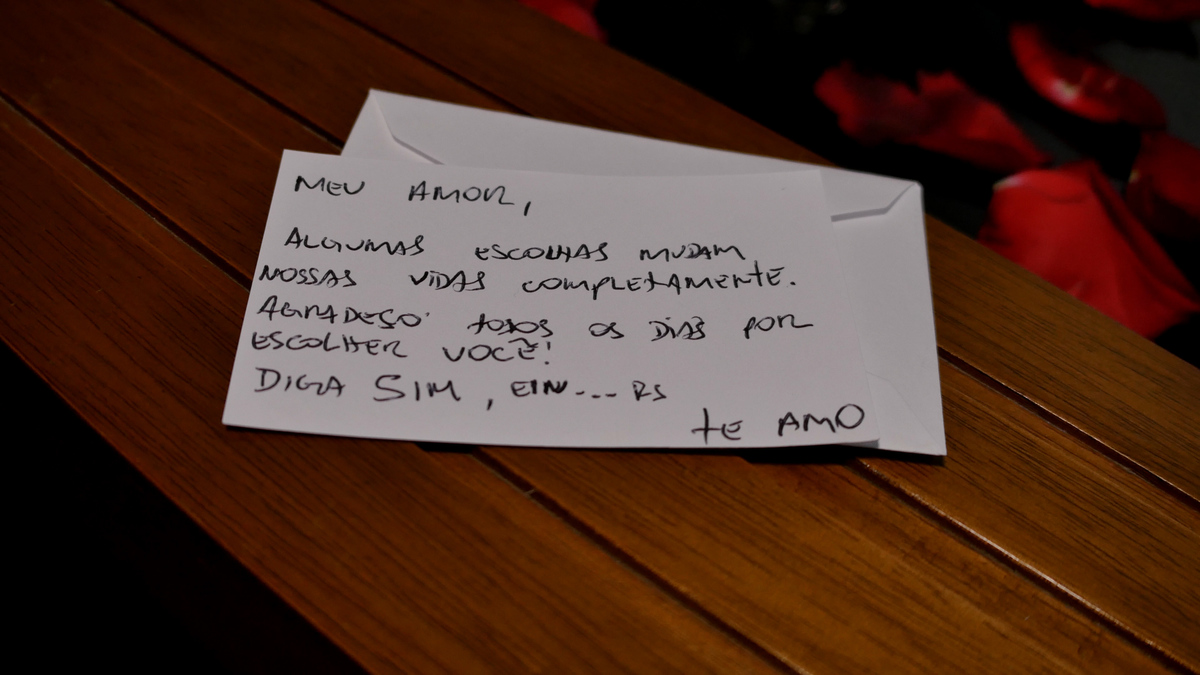 MEU AMOR,
ALGUMAS ESCOLHAS MUDAM
NOSSAS VIDAS COMPLETAMENTE.
AGRADEÇO TODOS OS DIAS POR
ESCOLHER VOCÊ!
DIGA SIM, EIN... RS
TE AMO